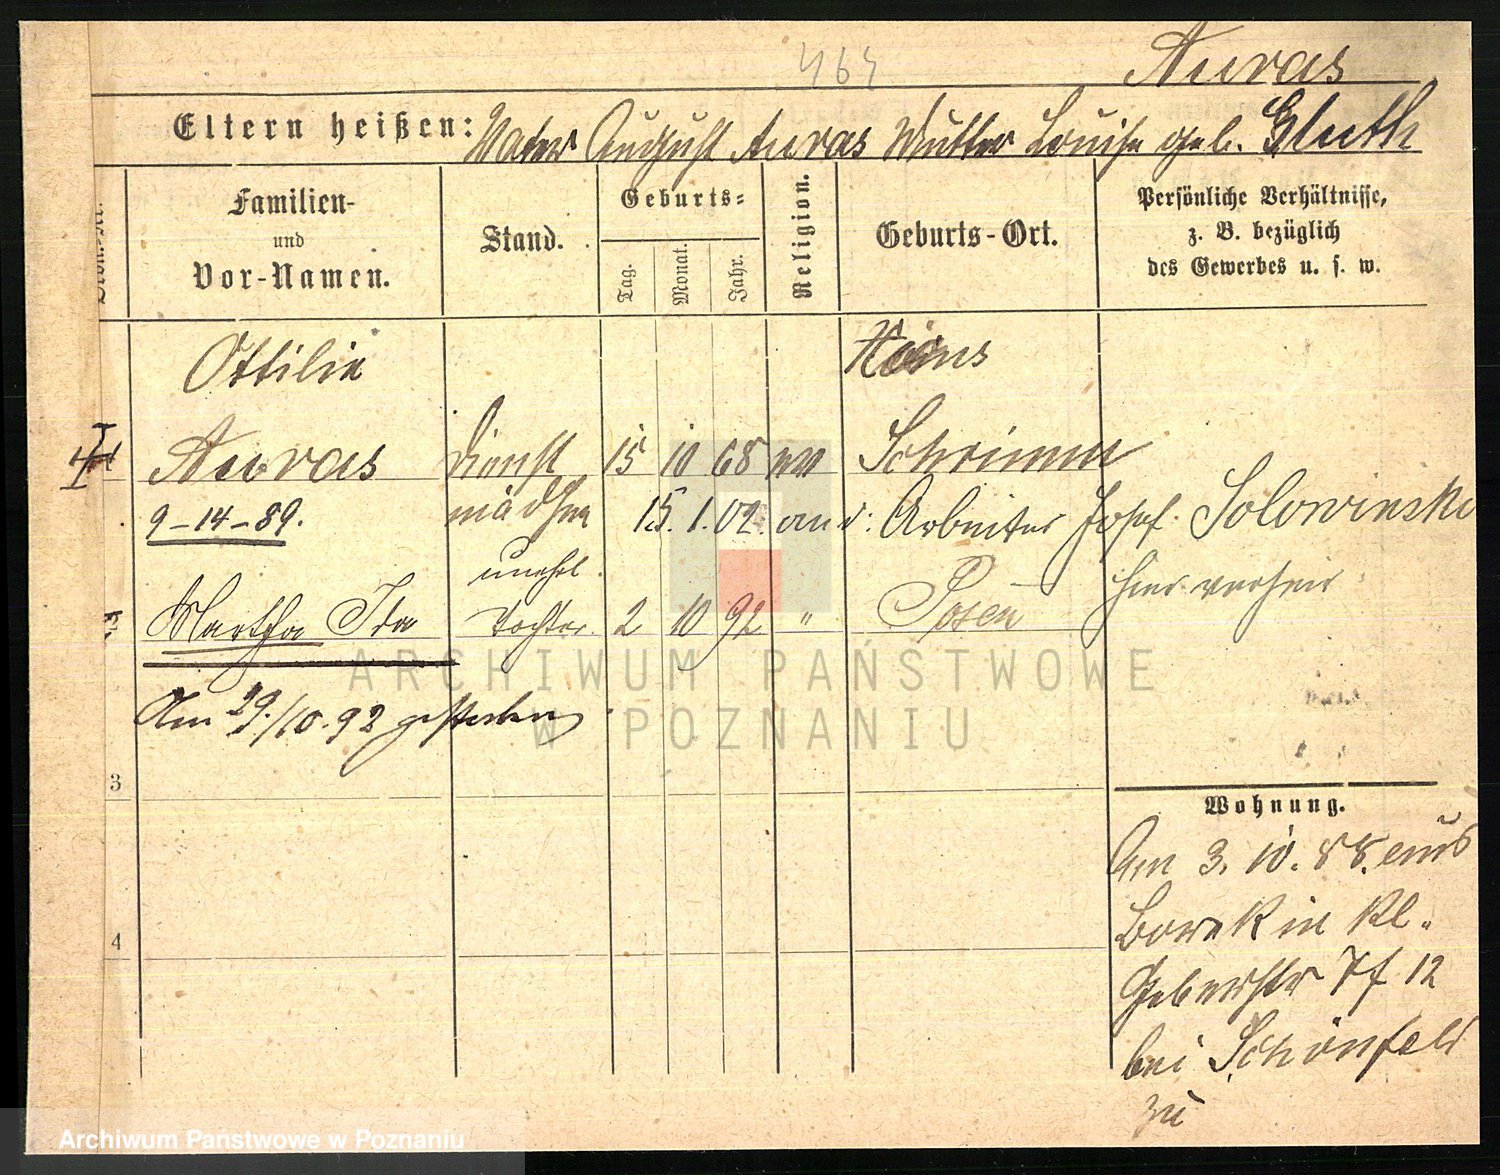 464 Auras
Eltern heißen: Vater August Auras Mutter Louise geb. Gluth
Familien-
und
Vor-Namen.
Stand.
Geburts-
Tag.
Monat.
Jahr.
Religion.
Geburts-Ort.
Persönliche Verhältnisse,
z. B. bezüglich
des Gewerbes u. s. w.
Ottilie
Auras Dienst 15 10 68 Schrimm
9-14-89. mädchen 15. 1. 02. an d: Arbeiter Josef Solowinski
unehl. hier verheir
Martha Ida Tochter 2 10 92 " Posen
Am 29./10.92 gestorben
3
4
Wohnung.
Am 3. 10. 88. aus
Borek in Kl.
Gerberstr 7f 12
bei Schönfeld
zu
ARCHIWUM PAŃSTWOWE
W POZNANIU
Archiwum Państwowe w Poznaniu